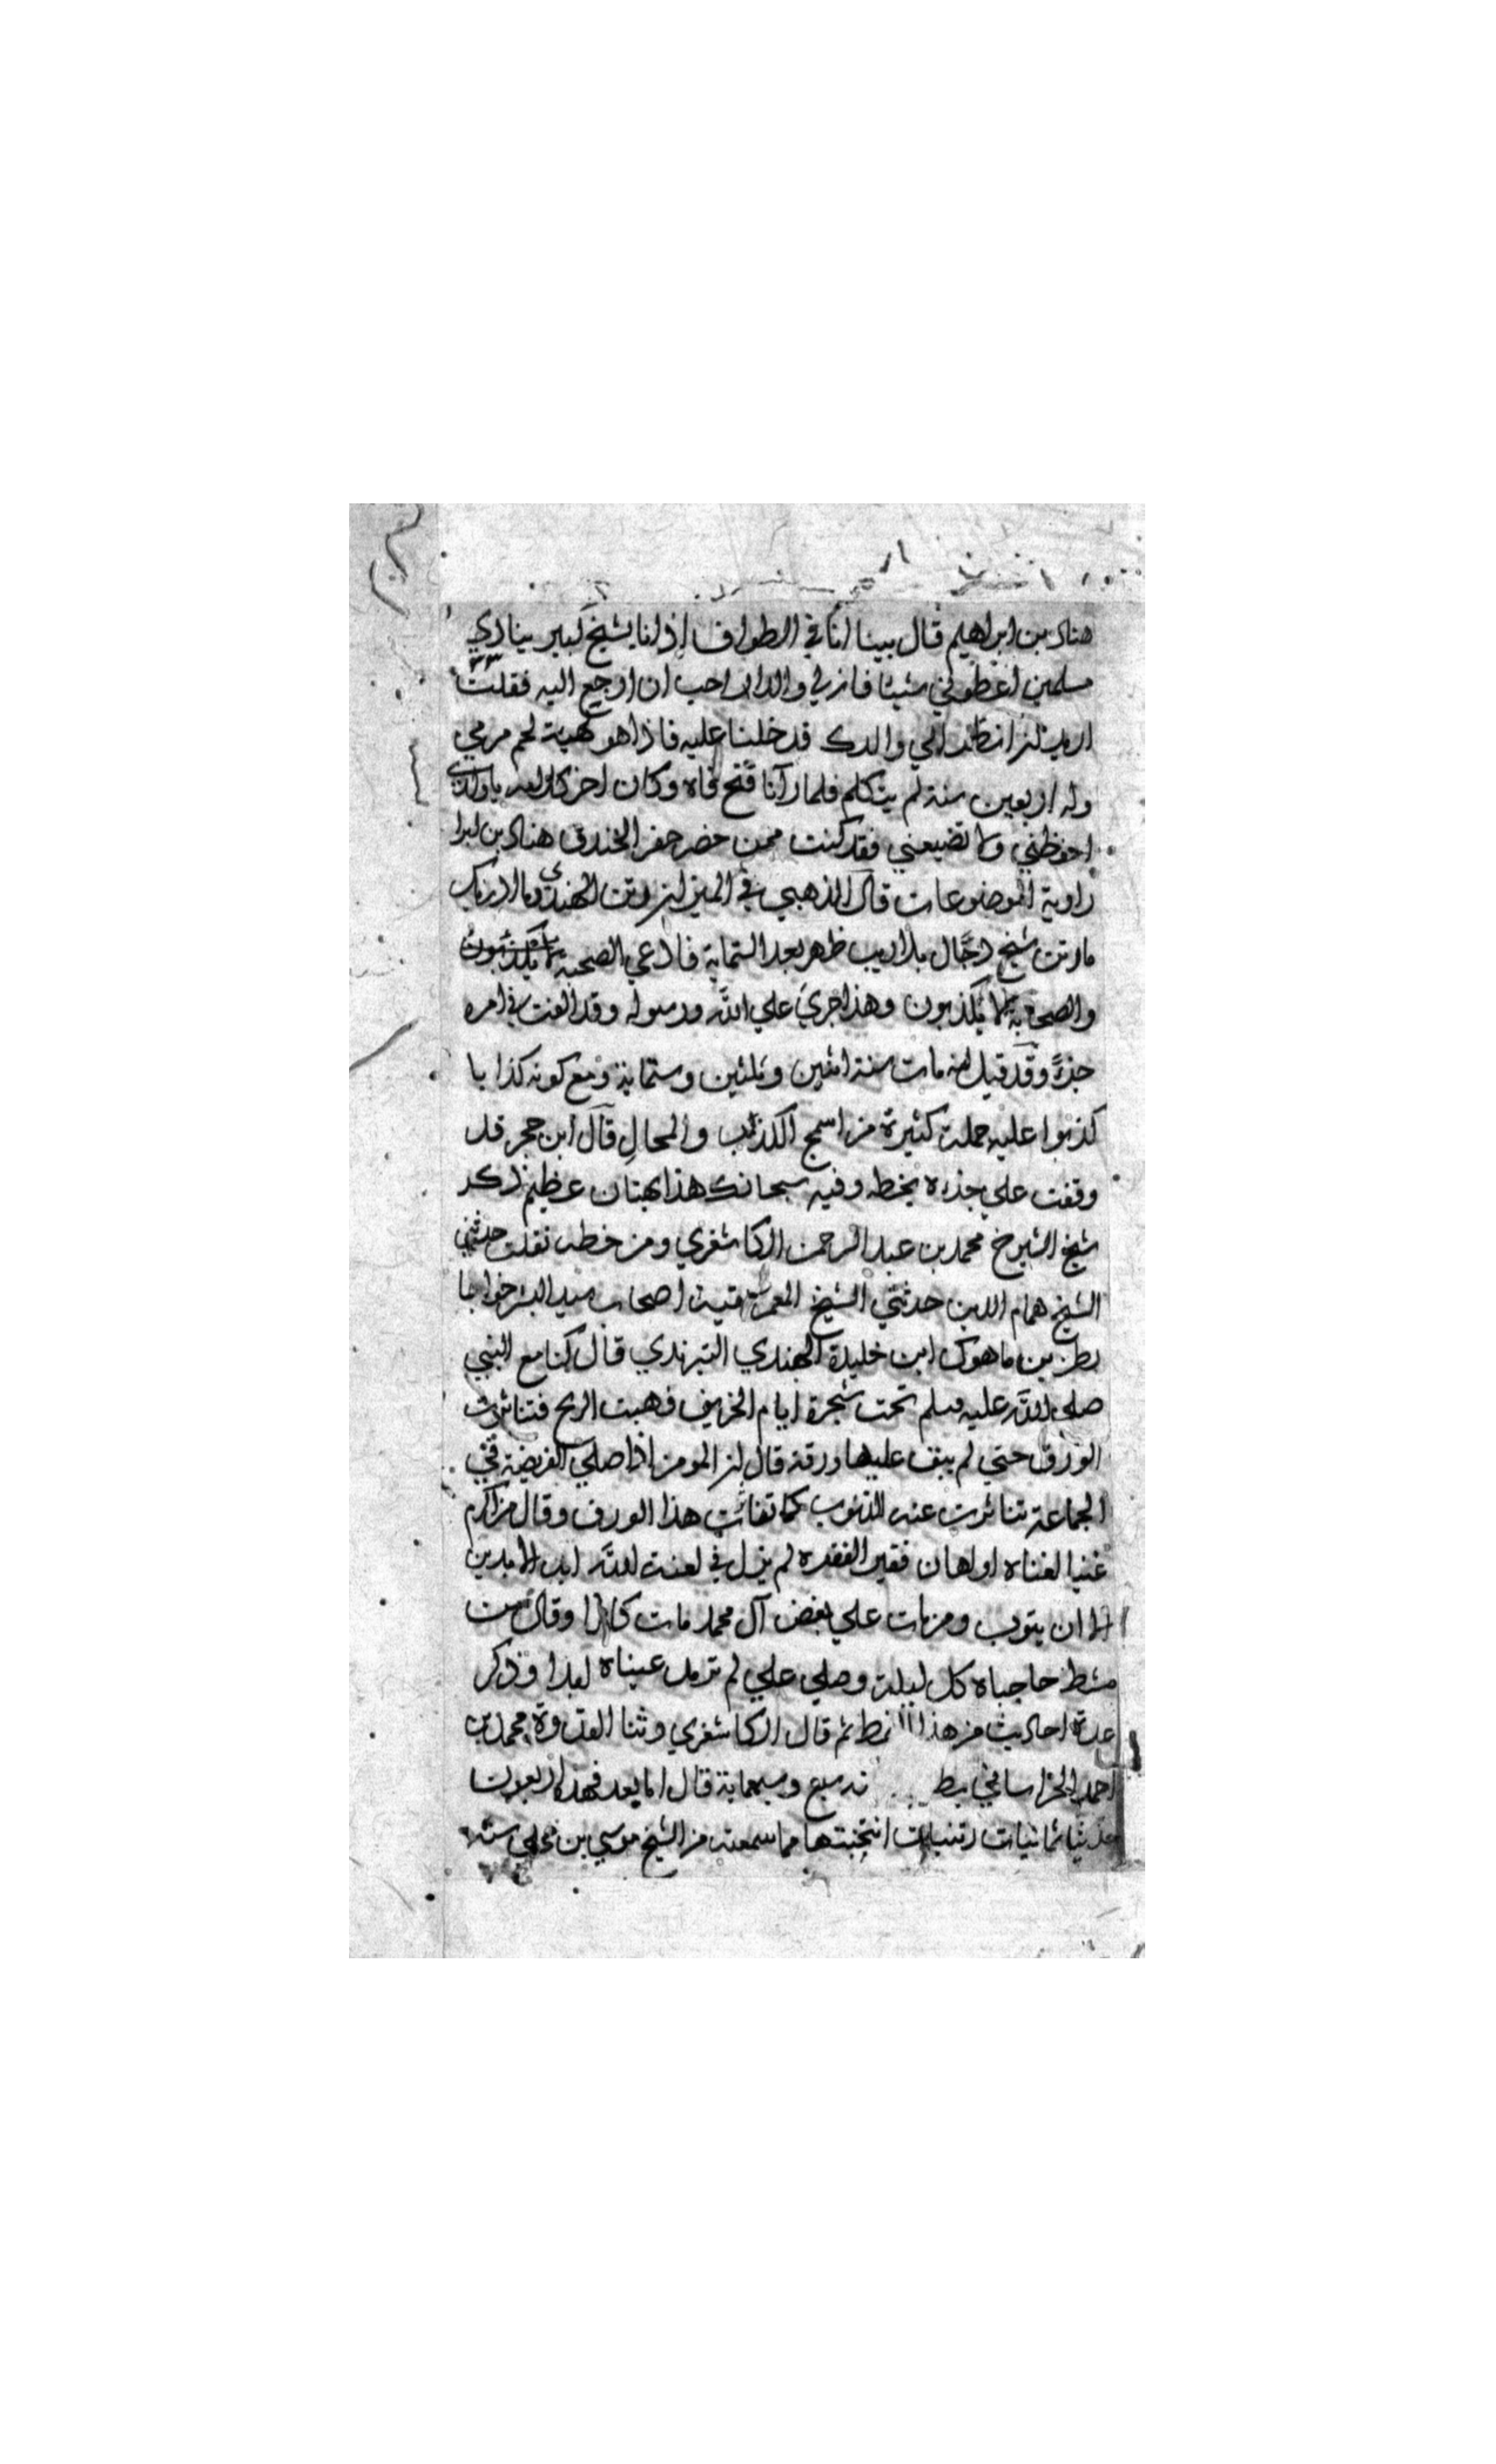 هناد بن ابراهيم قال بينا انا في الطواف اذ انا بشيخ كبير ينادي
مسلمين اعطوني شيئا فان لي والدا احب ان ارجع اليه فقلت
اريد ان انظر الي والدك فدخلنا عليه فاذا هو كهيئة لحم مرمي
وله اربعين سنة لم يتكلم فلما رآنا فتح فاه وكان اخر كلامه يا ولدي
احفظني ولا تضيعني فقد كنت ممن حضر حفر الخندق هناد بن ابرا
راوية الموضوعات قال الذهبي في الميزان رتن الهندي وما ادريك
ما رتن شيخ دجال بلا ريب ظهر بعد الستماية فادعي الصحبة
والصحابة لا يكذبون وهذا جري علي الله ورسوله وقد الفت في امره
جزءً وقد قيل انه مات سنة اثنين وثلثين وستماية ومع كونه كذابا
كذبوا عليه جملة كثيرة من اسمج الكذب والمحال قال ابن حجر قد
وقفت علي جزءه بخطه وفيه سبحانك هذا بهتان عظيم ذكر
شيخ الشيوخ محمد بن عبد الرحمن الكاشغري ومن خطه نقلت حدثني
الشيخ همام الدين حدثني الشيخ المعمر بقية اصحاب سيد البشر خواجا
رطن بن ماهوك ابن خليدة الهندي التبرندي قال كنا مع النبي
صلى الله عليه وسلم تحت شجرة ايام الخريف فهبت الريح فتناثرت
الورق حتي لم يبق عليها ورقة قال ان المومن اذا صلي الفريضة في
الجماعة تناثرت عنه الذنوب كما تناثرت هذا الورق وقال من اكرم
غنيا لغناه او اهان فقيرا لفقره لم يزل في لعنة الله ابد الابدين
الا ان يتوب ومن مات علي بغض آل محمد مات كافرا وقال من
مشط حاجباه كل ليلة وصلي علي لم ترمد عيناه ابدا وذكر
عدة احاديث من هذا النمط ثم قال الكاشغري وثنا القدوة محمد بن
احمد الخراساني سبع وسبعماية قال اما بعد فهذه اربعون
حديثا ثمانيات رتنيات انتخبتها مما سمعته من الشيخ موسي بن